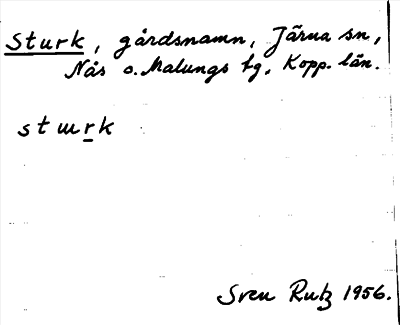 Sturk, gårdsnamn, Järna sn,
Nås o. Malungs tg, Kopp. län.
stɯrk
Sven Rutz 1956.